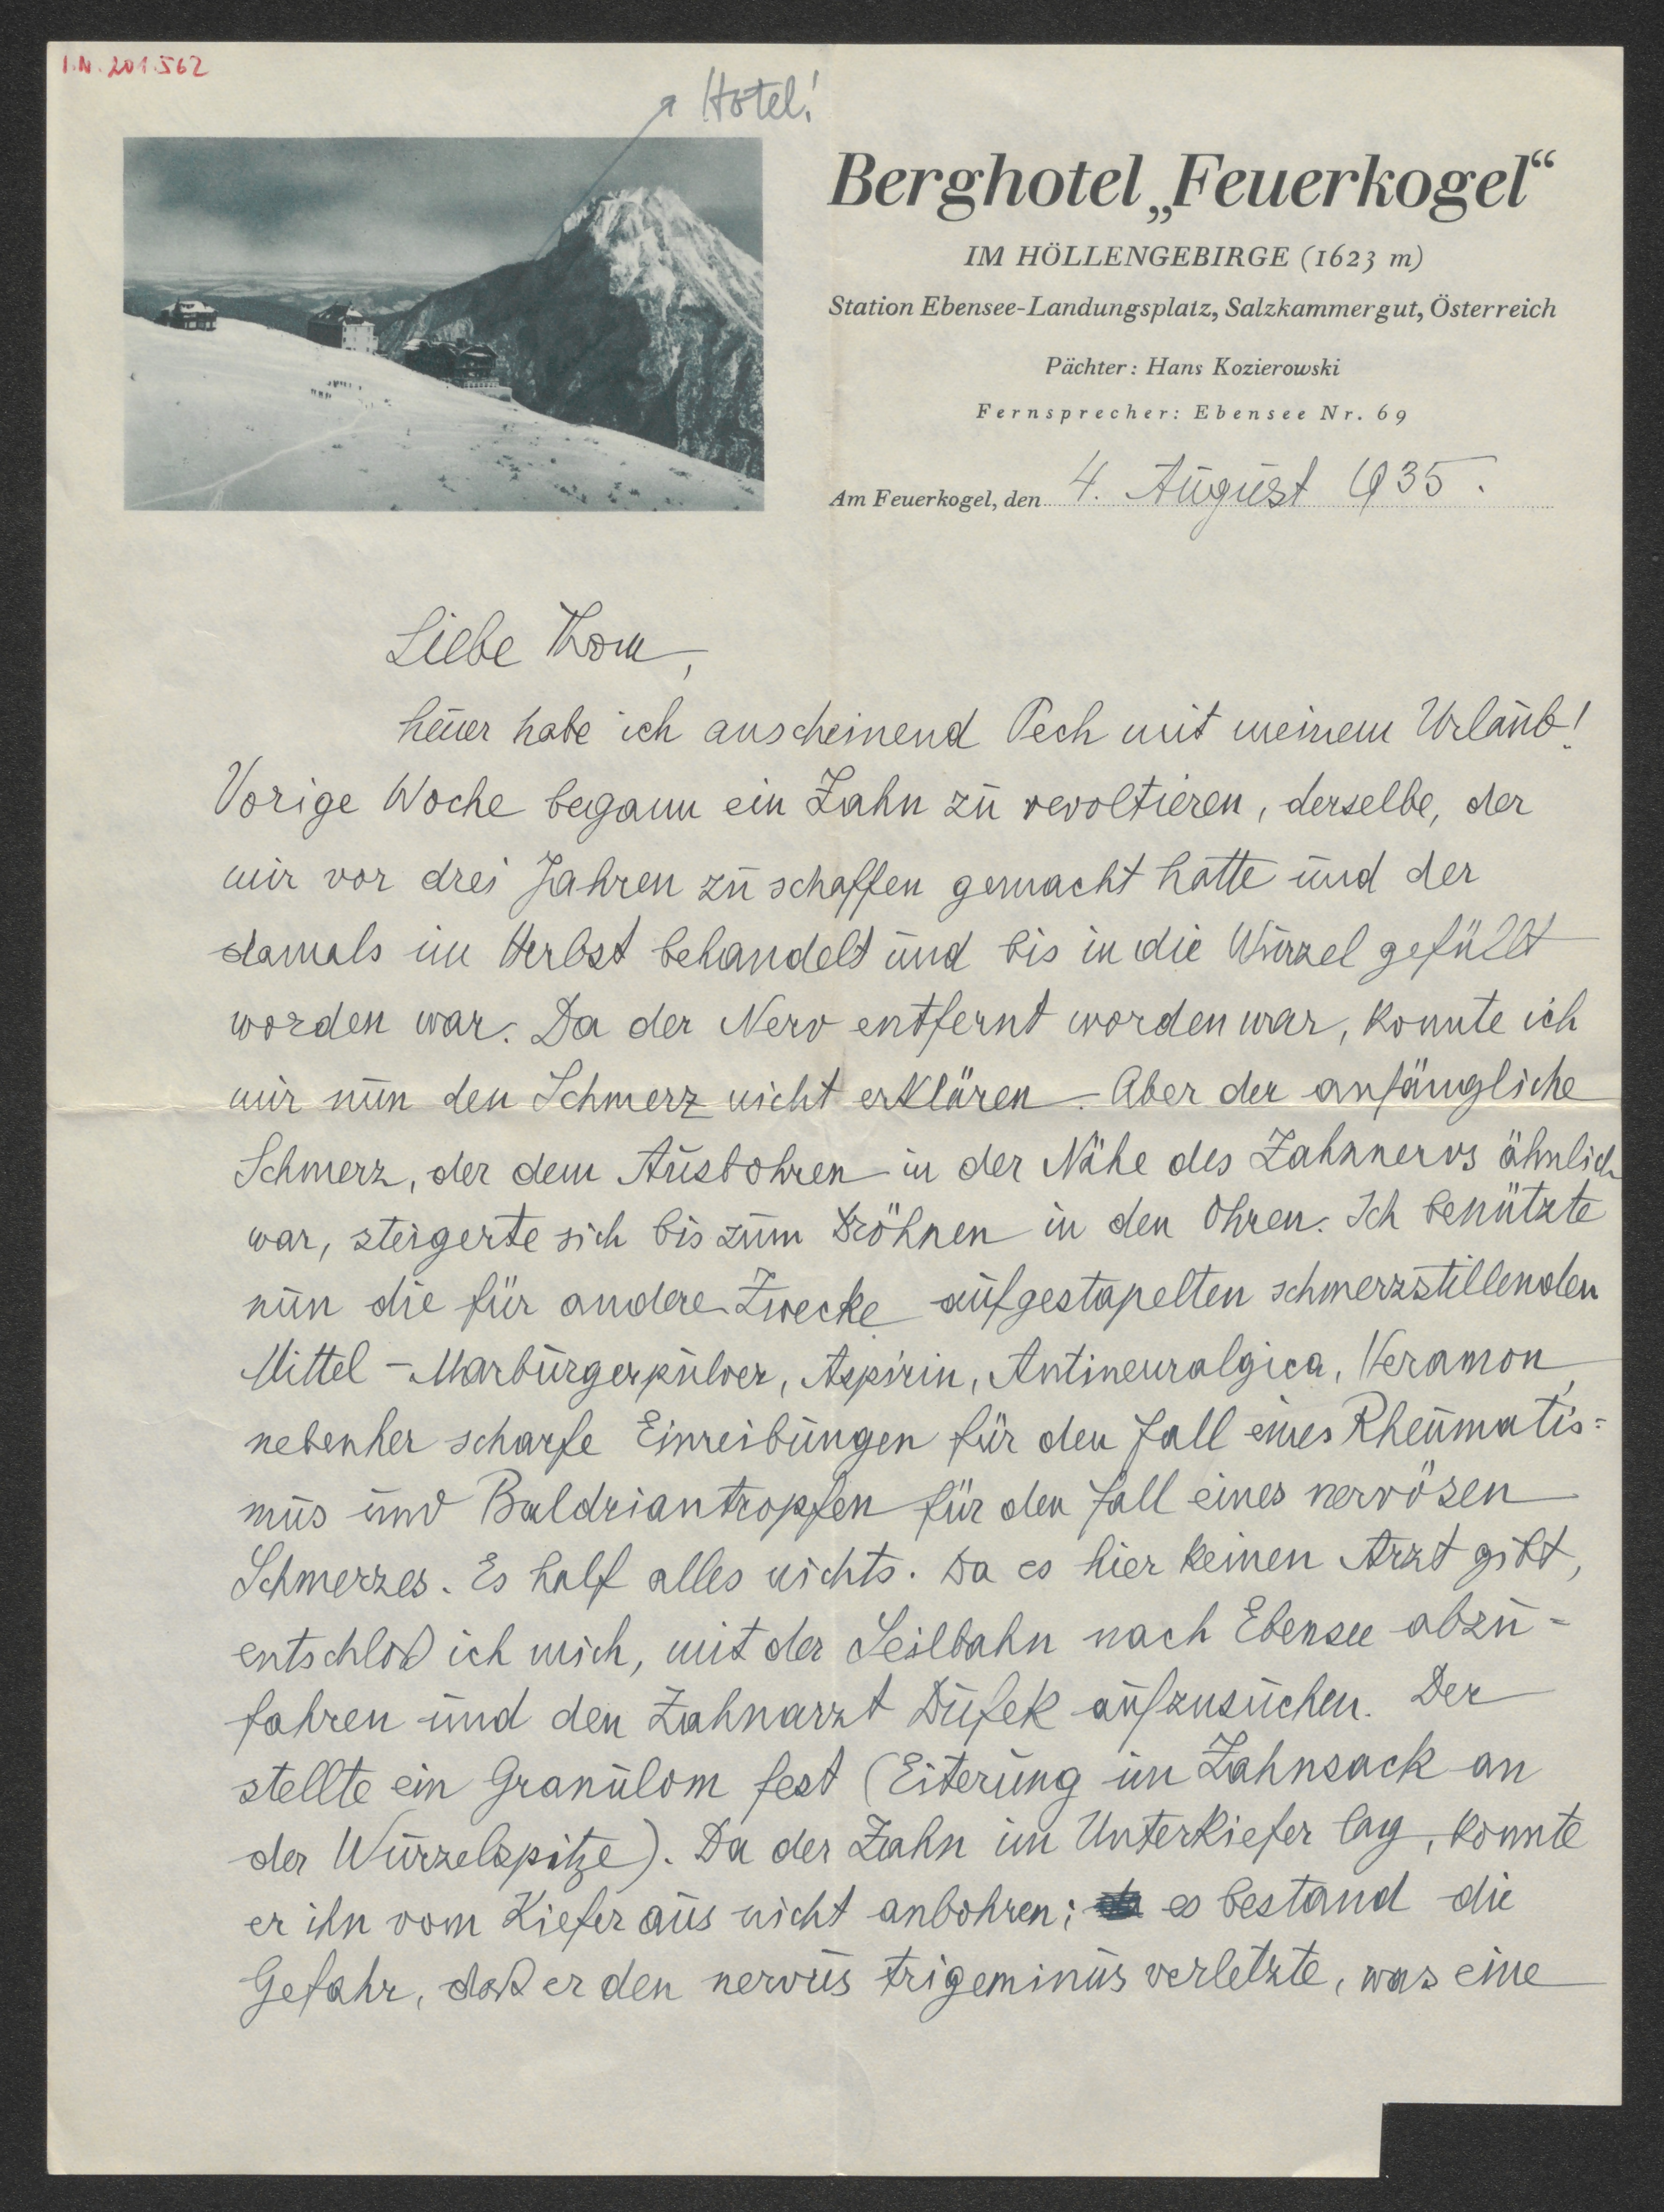 I.N. 201.562
Hotel!
Berghotel „Feuerkogel“
IM HÖLLENGEBIRGE (1623 m)
Station Ebensee-Landungsplatz, Salzkammergut, Österreich
Pächter: Hans Kozierowski
Fernsprecher: Ebensee Nr. 69
Am Feuerkogel, den 4. August 1935.
Liebe Thom,
heuer habe ich anscheinend Pech mit meinem Urlaub!
Vorige Woche begann ein Zahn zu revoltieren, derselbe, der
mir vor drei Jahren zu schaffen gemacht hatte und der
damals im Herbst behandelt und bis in die Wurzel gefüllt
worden war. Da der Nerv entfernt worden war, konnte ich
mir nun den Schmerz nicht erklären. Aber der anfängliche
Schmerz, der dem Ausbohren in der Nähe des Zahnnervs ähnlich
war, steigerte sich bis zum Dröhnen in den Ohren. Ich benützte
nun die für andere Zwecke aufgestapelten schmerzstillenden
Mittel – Marburgerpulver, Aspirin, Antineuralgica, Veramon,
nebenher scharfe Einreibungen für den Fall eines Rheumatis=
mus und Baldriantropfen für den Fall eines nervösen
Schmerzes. Es half alles nichts. Da es hier keinen Arzt gibt,
entschloß ich mich, mit der Seilbahn nach Ebensee abzu-
fahren und den Zahnarzt Dufek aufzusuchen. Der
stellte ein Granulom fest (Eiterung im Zahnsack an
der Wurzelspitze). Da der Zahn im Unterkiefer lag, konnte
er ihn vom Kiefer aus nicht anbohren; es bestand die
Gefahr, daß er den nervus trigeminus verletzte, was eine